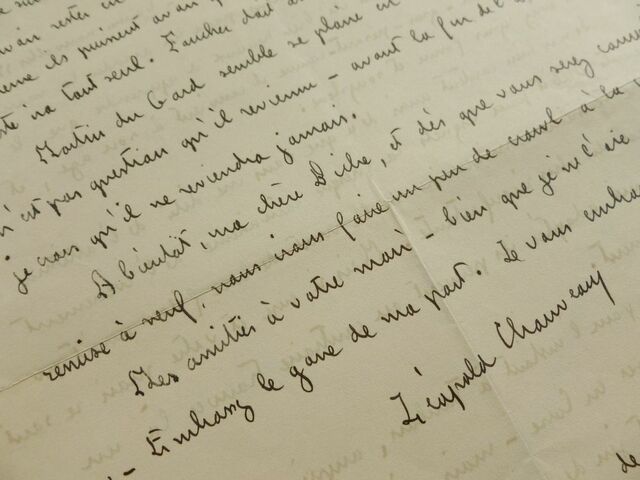 rester
ils puissent avan
ira tout seul. Faucher doit
Martin du Gard semble se plaire en
n'est pas question qu'il revienne - avant la fin de l'
je crois qu'il ne reviendra jamais.
A bientôt, ma chère Biche, et dès que vous serez
remise à neuf, venez nous faire un peu de crawl à la
Mes amitiés à votre mari - bien que je ne l'aie
- Embrassez le gone de ma part. Je vous embra
Léopold Chauveau
de